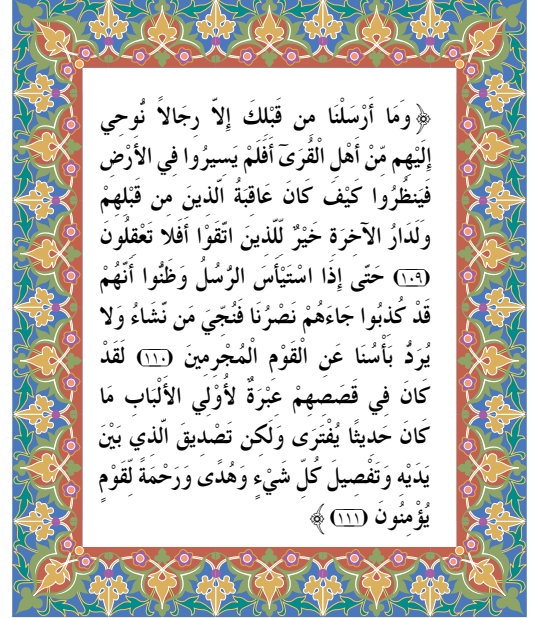 ﴿ وَمَا أَرْسَلْنَا مِن قَبْلِكَ إِلاَّ رِجَالاً نُّوحِي
إِلَيْهِم مِّنْ أَهْلِ الْقُرَىٓ أَفَلَمْ يَسِيرُوا فِي الأَرْضِ
فَيَنظُرُوا كَيْفَ كَانَ عَاقِبَةُ الَّذِينَ مِن قَبْلِهِمْ
وَلَدَارُ الآخِرَةِ خَيْرٌ لِّلَّذِينَ اتَّقَوْا أَفَلَا تَعْقِلُونَ
(١٠٩) حَتَّى إِذَا اسْتَيْأَسَ الرُّسُلُ وَظَنُّوا أَنَّهُمْ
قَدْ كُذِبُوا جَاءَهُمْ نَصْرُنَا فَنُجِّيَ مَن نَّشَاءُ وَلا
يُرَدُّ بَأْسُنَا عَنِ الْقَوْمِ الْمُجْرِمِينَ (١١٠) لَقَدْ
كَانَ فِي قَصَصِهِمْ عِبْرَةٌ لأُوْلِي الأَلْبَابِ مَا
كَانَ حَدِيثًا يُفْتَرَى وَلَكِن تَصْدِيقَ الَّذِي بَيْنَ
يَدَيْهِ وَتَفْصِيلَ كُلِّ شَيْءٍ وَهُدًى وَرَحْمَةً لِّقَوْمٍ
يُؤْمِنُونَ (١١١) ﴾